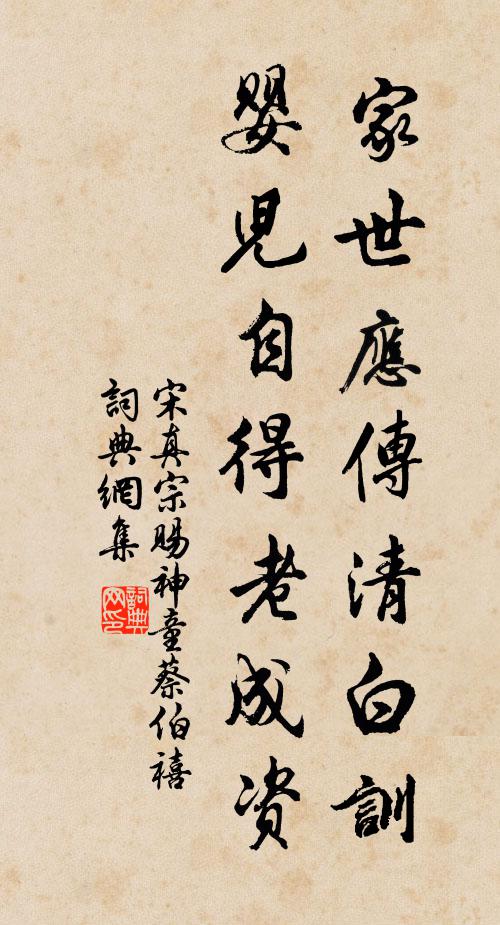 家世應傳清白訓
嬰児自得老成资
宋真宗賜神童蔡伯禧
詞典網集
詞典
网印